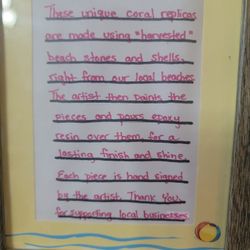 These unique coral replicas
are made using "harvested"
beach stones and shells,
right from our local beaches
The artist then paints the
pieces and pours epoxy
resin over them for a
lasting finish and shine.
Each piece is hand signed
by the artist. Thank You
for supporting local businesses